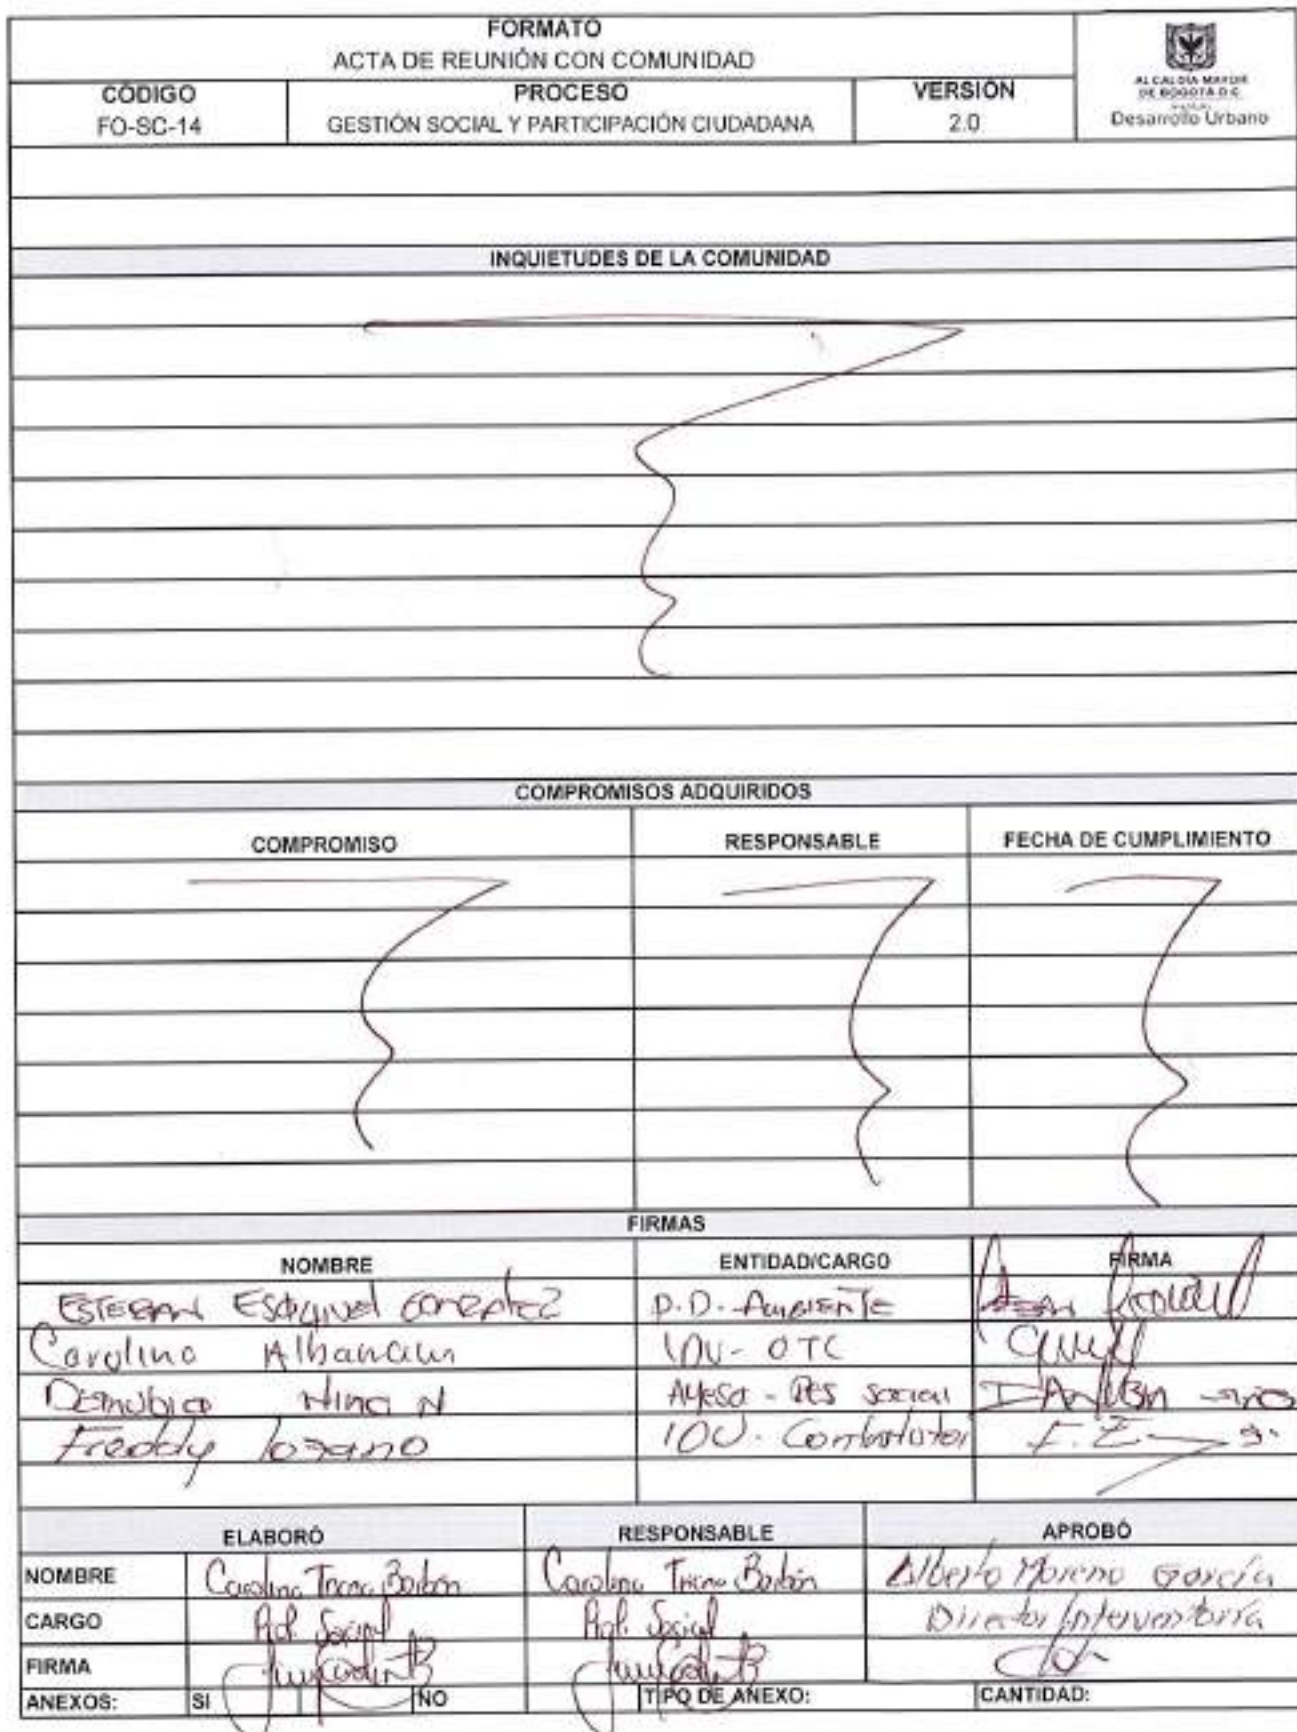 FORMATO
ACTA DE REUNIÓN CON COMUNIDAD
CÓDIGO PROCESO VERSIÓN
FO-SC-14 GESTIÓN SOCIAL Y PARTICIPACIÓN CIUDADANA 2.0
ALCALDÍA MAYOR
DE BOGOTÁ D.C.
Desarrollo Urbano
INQUIETUDES DE LA COMUNIDAD
COMPROMISOS ADQUIRIDOS
COMPROMISO RESPONSABLE FECHA DE CUMPLIMIENTO
FIRMAS
NOMBRE ENTIDAD/CARGO FIRMA
ESTEBAN Esquivel González D.D. Ambiente
Carolina IDU - OTC
Niño N Ayesa - Social
Freddy Lozano IDU - Contratista
ELABORÓ RESPONSABLE APROBÓ
NOMBRE Carolina Triana Barbón Carolina Triana Barbón Alberto Moreno García
CARGO Prof. Social Prof. Social Director Interventoría
FIRMA
ANEXOS: SI NO TIPO DE ANEXO: CANTIDAD: